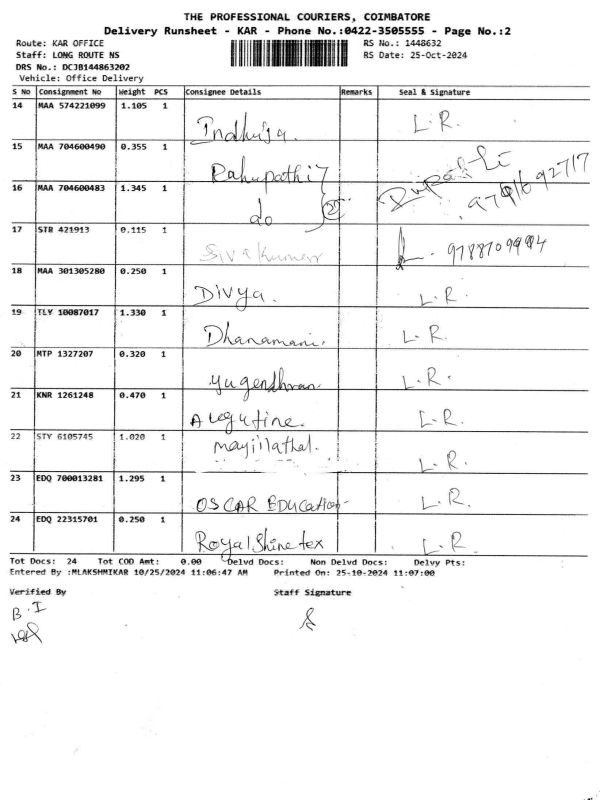 THE PROFESSIONAL COURIERS, COIMBATORE
Delivery Runsheet - KAR - Phone No.:0422-3505555 - Page No.:2
Route: KAR OFFICE RS No.: 1448632
Staff: LONG ROUTE NS RS Date: 25-Oct-2024
DRS No.: DCJB144863202
Vehicle: Office Delivery
S No Consignment No Weight PCS Consignee Details Remarks Seal & Signature
14 MAA 574221099 1.105 1 L.R.
15 MAA 704600490 0.355 1
16 MAA 704600483 1.345 1 do
17 STR 421913 0.115 1 Sivakumar
18 MAA 301305280 0.250 1 Divya. L.R.
19 TLY 10087017 1.330 1 Dhanamani. L.R.
20 MTP 1327207 0.320 1 yugendhran L.R.
21 KNR 1261248 0.470 1 L.R.
22 STY 6105745 1.020 1 L.R.
23 EDQ 700013281 1.295 1 OSCAR EDUCation- L.R.
24 EDQ 22315701 0.250 1 Royal Shine tex L.R.
Tot Docs: 24 Tot COD Amt: 0.00 Delvd Docs: Non Delvd Docs: Delvy Pts:
Entered By :MLAKSHMIKAR 10/25/2024 11:06:47 AM Printed On: 25-10-2024 11:07:00
Verified By Staff Signature
B.I